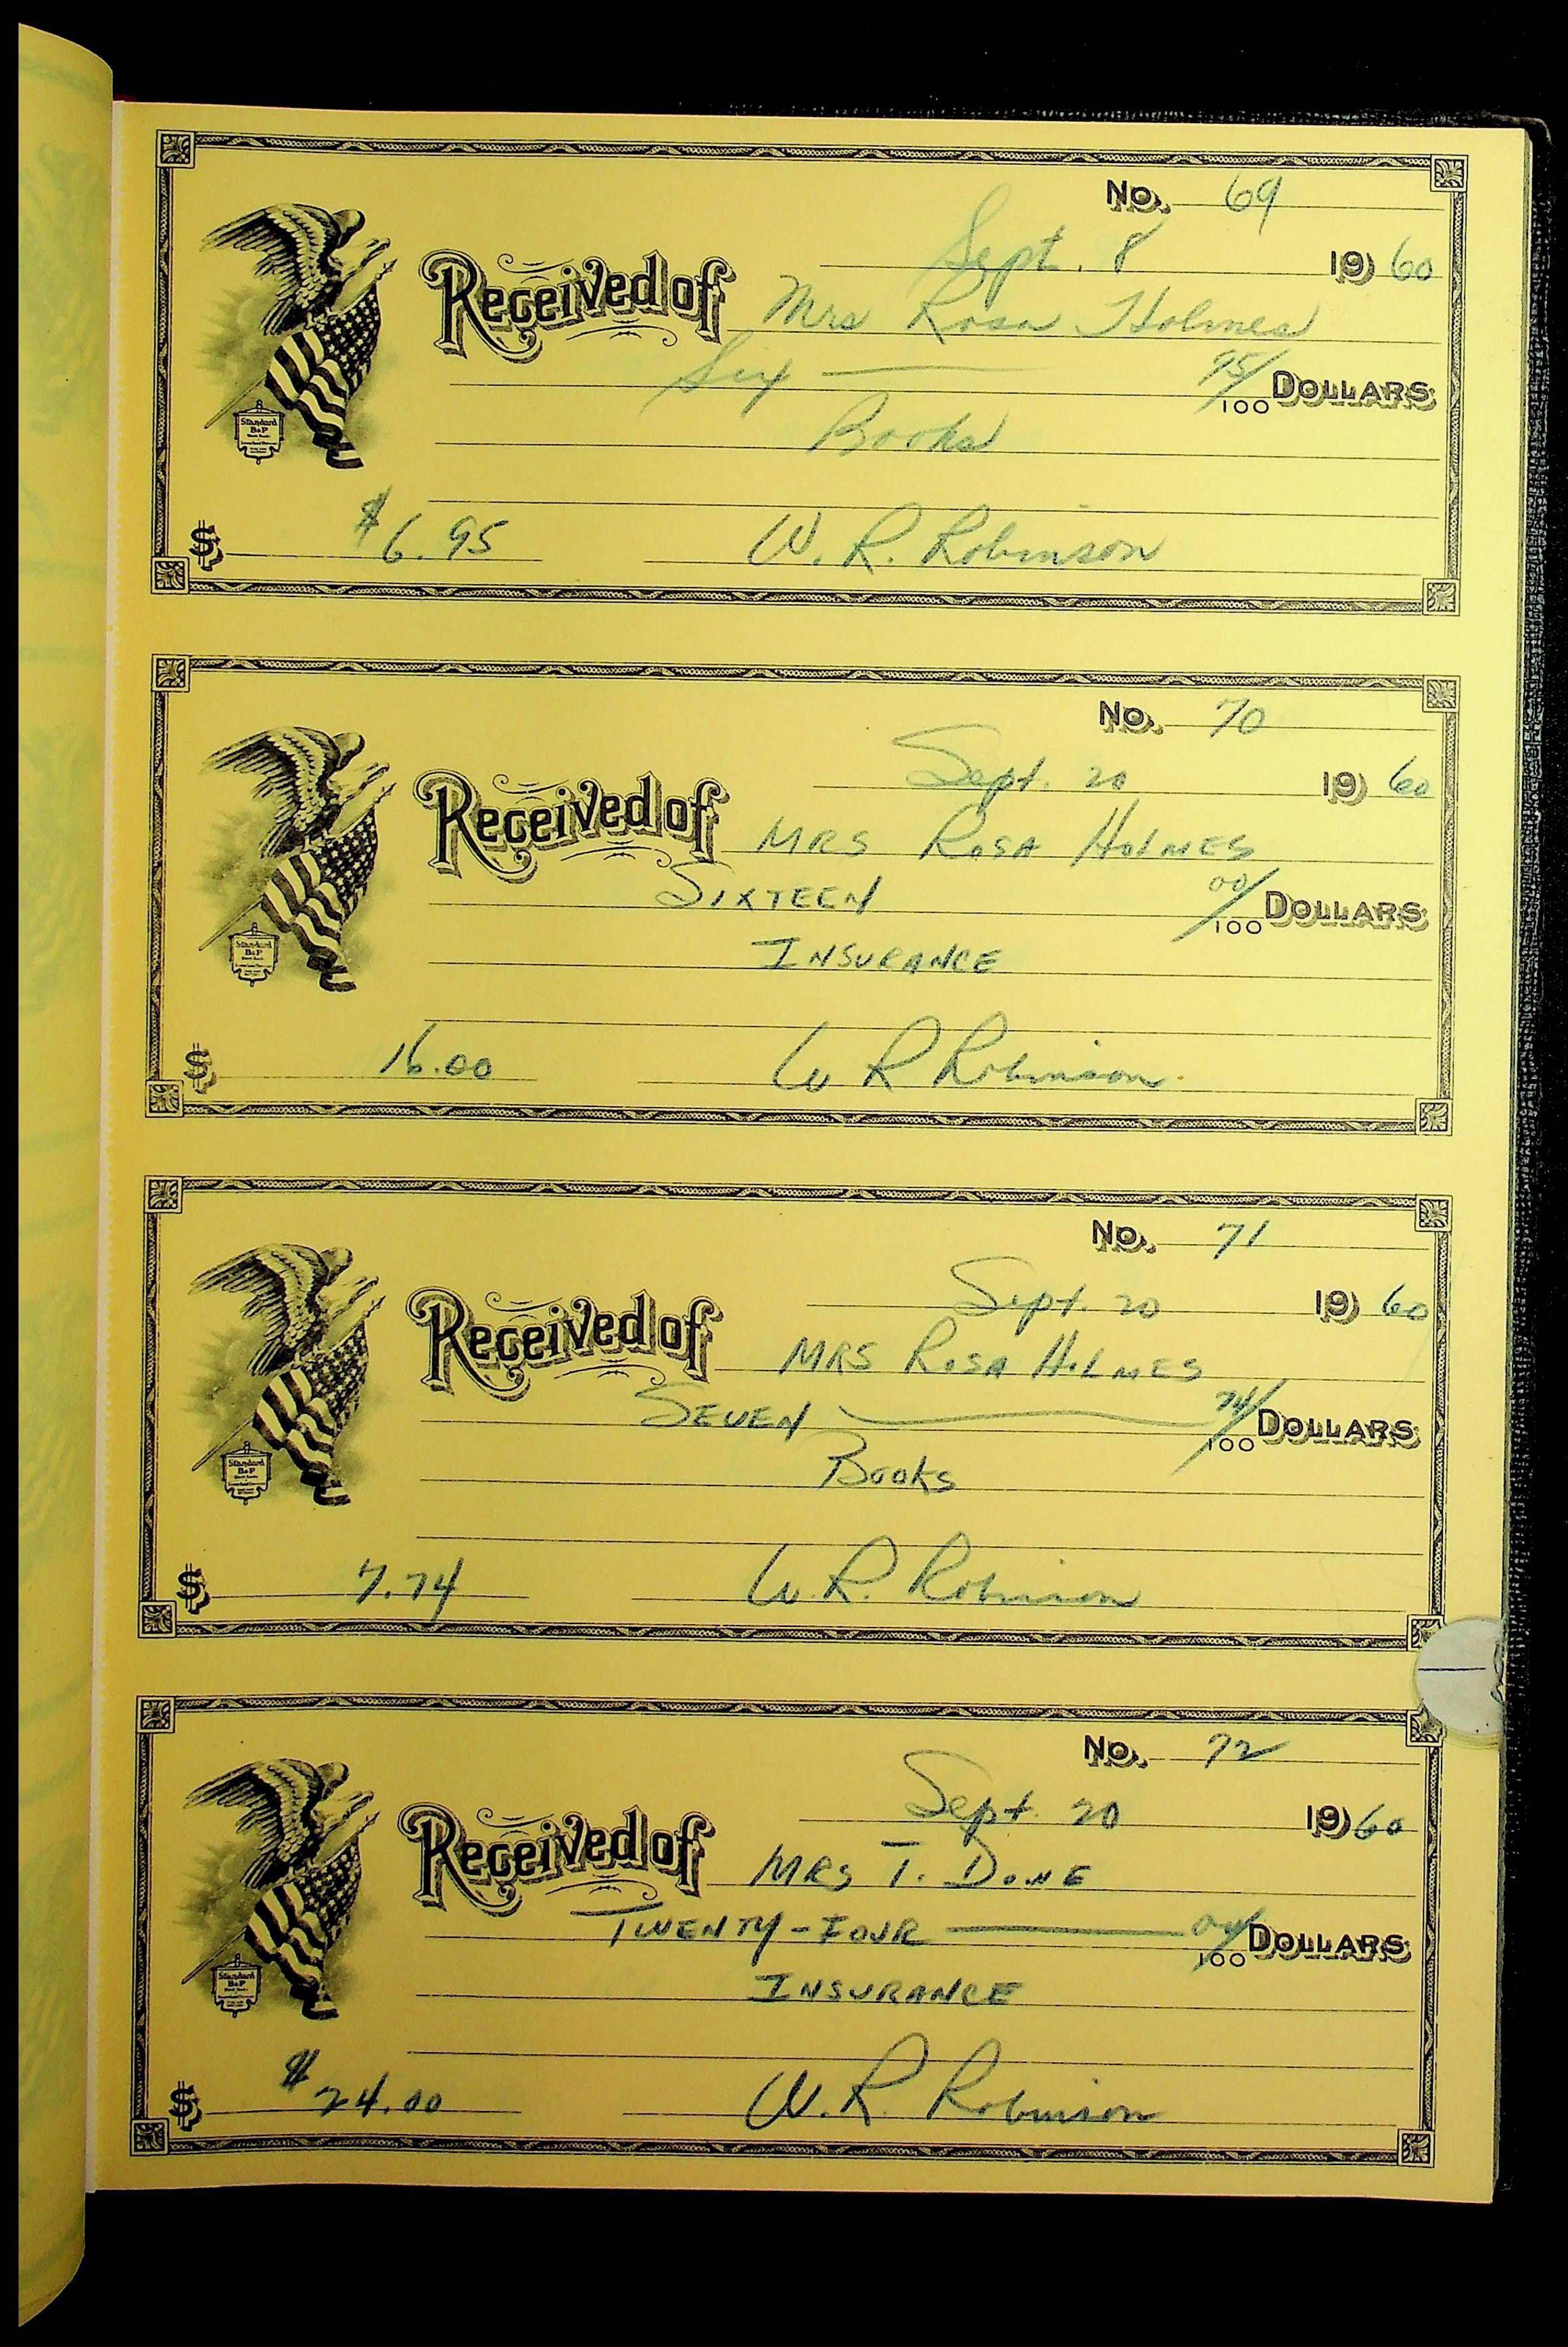 No. 69
Sept. 8 1960
Received of Mrs Rosa Holmes
Six 95/100 DOLLARS
Books
Standard B&P
$ $6.95 W. R. Robinson
No. 70
Sept. 20 1960
Received of MRS ROSA HOLMES
SIXTEEN 00/100 DOLLARS
INSURANCE
Standard B&P
$ 16.00 W R Robinson
No. 71
Sept. 20 1960
Received of MRS ROSA HOLMES
SEVEN 74/100 DOLLARS
Books
Standard B&P
$ 7.74 W. R. Robinson
No. 72
Sept. 20 1960
Received of MRS T. DONE
TWENTY-FOUR 00/100 DOLLARS
INSURANCE
Standard B&P
$ $24.00 W. R. Robinson